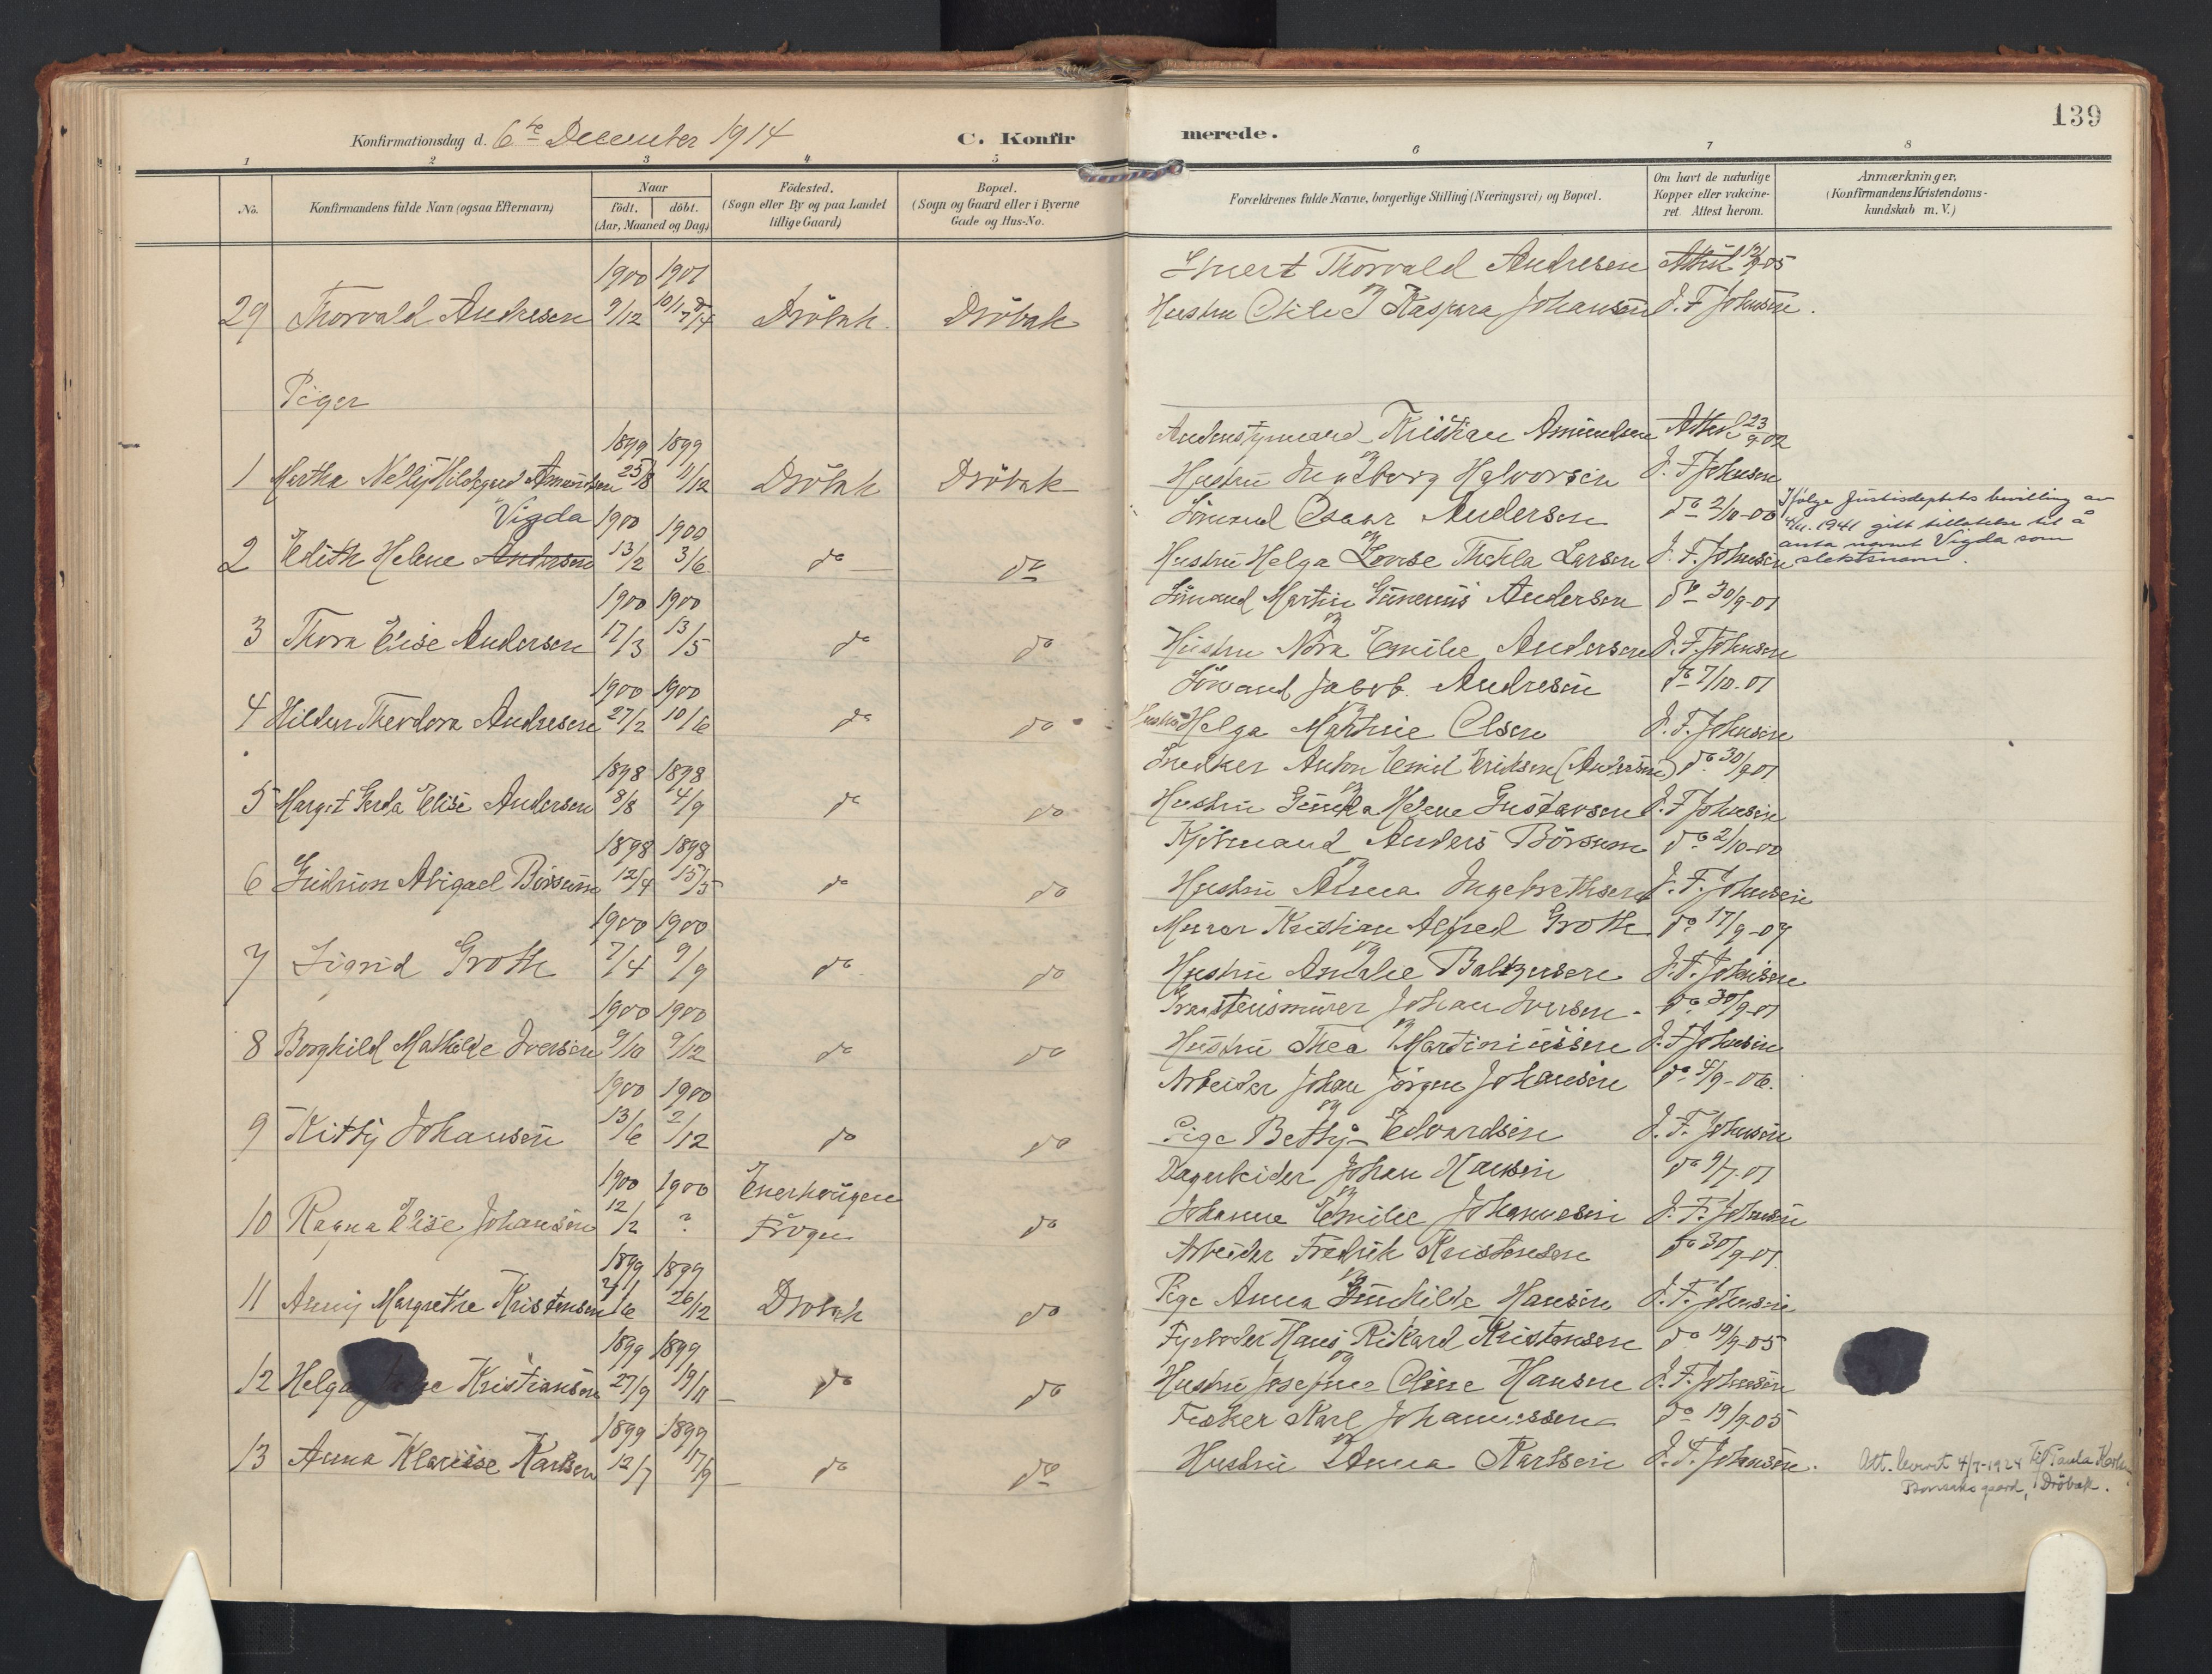 139
Konfirmationsdag d. 6te December 1914
C. Konfirmerede.
1 2 3 4. 5 6 7 8
No.
Konfirmandens fulde Navn (ogsaa Efternavn)
Naar
födt. döbt.
(Aar, Maaned og Dag)
Födested.
(Sogn eller By og paa Landet
tillige Gaard)
Bopæl.
(Sogn og Gaard eller i Byerne
Gade og Hus-No.
Forældrenes fulde Navne, borgerlige Stilling (Næringsvei) og Bopæl.
Om havt de naturlige
Kopper eller vakcine-
ret. Attest herom.
Anmærkninger.
(Konfirmandens Kristendoms-
kundskab m. V.)
1900 1901 Thorvald Andresen
29 Thorvald Andresen 9/12 Dröbak Dröbak Hustru Kaspara Johansen J. F. Johnsen.
Piger
1899 1899 Kristian Amundsen Attest 23/9-02
1 Martha Nelly Hildegard Amundsen 25/8 11/12 Dröbak Dröbak Hustru Ingeborg Halvorsen J. F. Johnsen
Vigda 1900 1900 Sömand Oscar Andersen do 2/10-00
2 Edith Helene Andersen 13/2 3/6 do do Hustru Helga Lovise Thekla Larsen J. F. Johnsen
Ifölge Justisdeptets bevilling av
4/11. 1941 gitt tillatelse til å
anta navnet Vigda som
slektsnavn.
1900 1900 Sömand Martin Andersen do 30/9-01
3 Thora Elise Andersen 17/3 13/5 do do Hustru Nora Emilie Andersen J. F. Johnsen
1900 1900 Sömand Jakob Andresen do 7/10-01
4 Hildur Theodora Andresen 27/2 10/6 do do Hustru Helga Mathie Olsen J. F. Johnsen
1898 1898 Snedker Anton Emil Eriksen (Andersen) do 30/9 01
5 Margit Gerda Elise Andersen 8/8 4/9 do do Hustru Helene Gustavsen J. F. Johnsen
1898 1898 Kjöbmand Anders Börsum do 2/10-00
6 Gudrun Abigael Börsum 12/4 15/5 do do Hustru Anna Ingebrethsen J. F. Johnsen
1900 1900 Murer Kristian Alfred Groth do 17/9-07
7 Sigrid Groth 7/4 9/9 do do Hustru Amalie Baltzersen J. F. Johnsen
1900 1900 Graastensmurer Johan Iversen do 30/9-01
8 Borghild Mathilde Iversen 9/10 9/12 do do Hustru Thea Martiniussen J. F. Johnsen
1900 1900 Arbeider Johan Jörgen Johansen do 4/9-06.
9 Kitty Johansen 13/6 2/12 do do Pige Betty Edvardsen J. F. Johnsen
1900 1900 Enerhaugen Dagarbeider Johan Hansen do 9/7-01
10 Ragna Elise Johansen 12/2 ? Frogn do Johanne Emilie Johannesen J. F. Johnsen
1899 1899 Arbeider Fredrik Kristensen do 30/9-01
11 Anny Margrethe Kristensen 26/12 Dröbak do Pige Anna Gunhilde Hansen J. F. Johnsen
1899 1899 Fyrböder Hans Rikard Kristensen do 19/9-05
12 Helga Kristiansen 27/9 19/11 do do Hustru Josefine Oline Hansen J. F. Johnsen
1899 1899 Fisker Karl Johannessen do 19/9-05
13 Anna Klarisse Karlsen 12/7 17/9 do do Hustru Anna Karlsen J. F. Johnsen.
Att. levert 4/7-1924 Til Paula Karlsen
gaard, Dröbak.